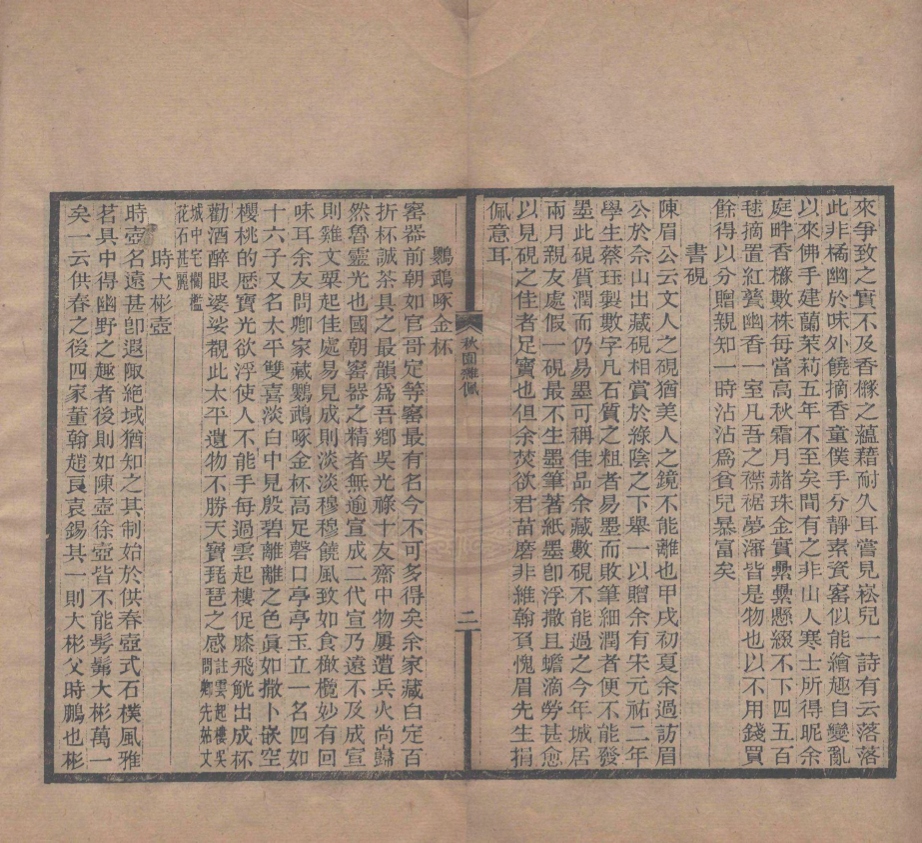 來爭致之實不及香櫞之蘊藉耐久耳嘗見崧兒一詩有云落落
此非橘幽於味外饒摘香童僕手分靜素資窰似能繪趣自變亂
以來佛手建蘭茉莉五年不至矣間有之非山人寒士所得昵余
庭畔香櫞數株每當高秋霜月赭珠金實纍纍懸綴不下四五百
毬摘置紅甆幽香一室凡吾之襟裾夢瀋皆是物也以不用錢買
餘得以分贈親知一時沾沾爲貧兒暴富矣
書硯
陳眉公云文人之硯猶美人之鏡不能離也甲戌初夏余過訪眉
公於佘山出藏硯相賞於綠陰之下舉一以贈余有宋元祐二年
學生蔡珏製數字凡石質之粗者易墨而敗筆細潤者便不能發
墨此硯質潤而仍易墨可稱佳品余藏數硯不能過之今年城居
兩月親友處假一硯最不生墨筆著紙墨卽浮撒且蟾滴勞甚愈
以見硯之佳者足寶也但余焚欲君苗磨非維翰頁愧眉先生捐
佩意耳
秋園雜佩
二
鸚鵡啄金杯
窰器前朝如官哥定等窰最有名今不可多得矣余家藏白定百
折杯誠茶具之最韻爲吾鄉吳光祿十友齋中物屢遭兵火尚巋
然魯靈光也國朝窰器之精者無逾宣成二代宣乃遠不及成宣
則雞文粟起佳處易見成則淡淡穆穆饒風致如食橄欖妙有回
味耳余友問卿家藏鸚鵡啄金杯高足磬口亭亭玉立一名四如
十六子又名太平雙喜淡白中見殷碧離離之色眞如撒卜嵌空
櫻桃的歷寶光欲浮使人不能手每過雲起樓促膝飛觥出成杯
勸酒醉眼婆娑覩此太平遺物不勝天寶琵琶之感註雲起樓吳問卿先姊丈
城中宅欄檻花石甚麗
時大彬壺
時壺名遠甚卽遐陬絕域猶知之其制始於供春壺式石樸風雅
茗具中得幽野之趣者後則如陳壺徐壺皆不能髣髴大彬萬一
矣一云供春之後四家董翰趙良袁錫其一則大彬父時鵬也彬